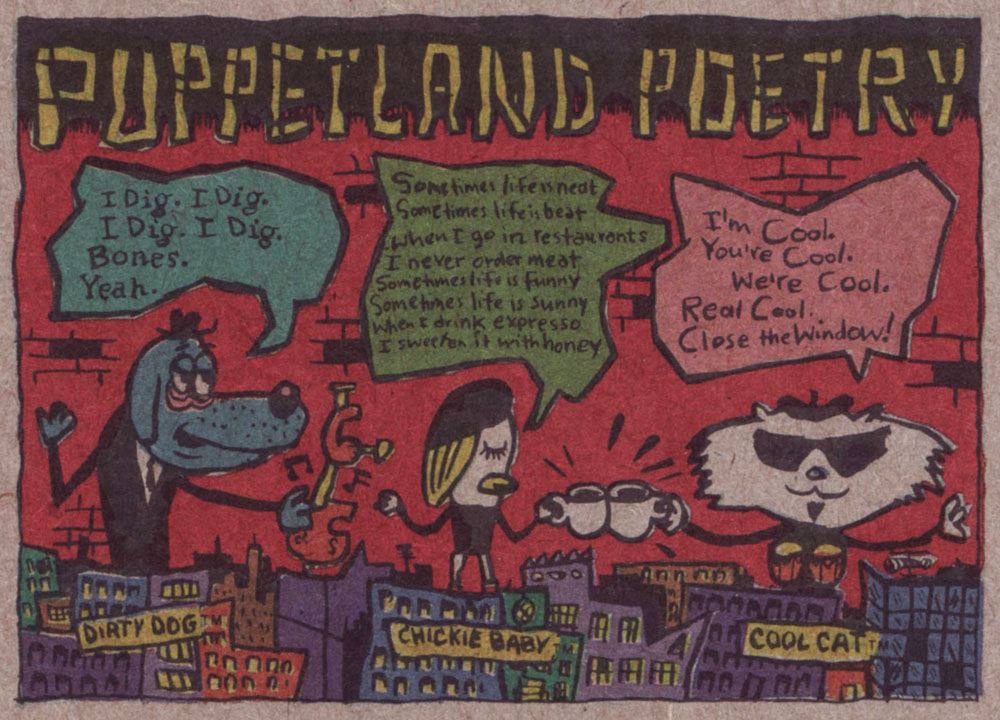 PUPPETLAND POETRY
I Dig. I Dig.
I Dig. I Dig.
Bones.
Yeah.
Sometimes life is neat
Sometimes life is beat
When I go in restaurants
I never order meat
Sometimes life is funny
Sometimes life is sunny
When I drink expresso
I sweeten it with honey
I'm Cool.
You're Cool.
We're Cool.
Real Cool.
Close the Window!
DIRTY DOG TM
CHICKIE BABY TM
COOL CAT TM